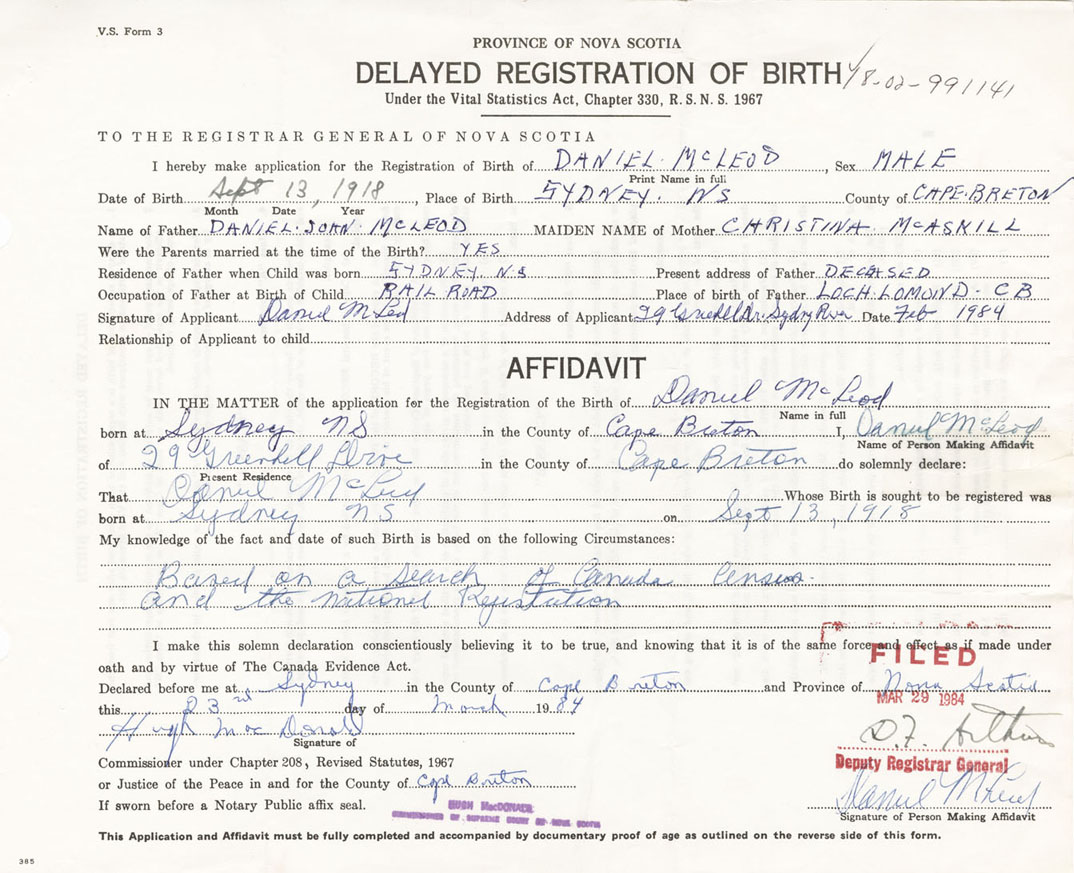 V.S. Form 3
PROVINCE OF NOVA SCOTIA
DELAYED REGISTRATION OF BIRTH 18-02-991141
Under the Vital Statistics Act, Chapter 330, R.S.N.S. 1967
TO THE REGISTRAR GENERAL OF NOVA SCOTIA
I hereby make application for the Registration of Birth of DANIEL. McLEOD, Sex MALE
Print Name in full
Date of Birth Sept 13, 1918, Place of Birth SYDNEY. NS County of CAPE.BRETON
Month Date Year
Name of Father DANIEL.JOHN.McLEOD MAIDEN NAME of Mother CHRISTINA. McASKILL
Were the Parents married at the time of the Birth? YES
Residence of Father when Child was born SYDNEY. N.S Present address of Father DECEASED
Occupation of Father at Birth of Child RAIL ROAD Place of birth of Father LOCH.LOMOND-CB
Signature of Applicant Daniel McLeod Address of Applicant 29 Greenhill Dr. Sydney River Date Feb 1984
Relationship of Applicant to child
AFFIDAVIT
IN THE MATTER of the application for the Registration of the Birth of Daniel McLeod
Name in full
born at Sydney NS in the County of Cape Breton I, Daniel McLeod
Name of Person Making Affidavit
of 29 Greenhill Drive in the County of Cape Breton do solemnly declare:
Present Residence
That Daniel McLeod Whose Birth is sought to be registered was
born at Sydney NS on Sept 13, 1918
My knowledge of the fact and date of such Birth is based on the following Circumstances:
Based on a search of Canada Census.
and the National Registration
I make this solemn declaration conscientiously believing it to be true, and knowing that it is of the same force and effect as if made under
oath and by virtue of The Canada Evidence Act.
FILED
Declared before me at Sydney in the County of Cape Breton and Province of Nova Scotia
MAR 29 1984
this 23rd day of March 1984
Hugh MacDonald
Signature of
D.F. Arthur
Commissioner under Chapter 208, Revised Statutes, 1967
Deputy Registrar General
or Justice of the Peace in and for the County of Cape Breton
Daniel McLeod
If sworn before a Notary Public affix seal.
HUGH MacDONALD
COMMISSIONER OF SUPREME COURT OF NOVA SCOTIA
Signature of Person Making Affidavit
This Application and Affidavit must be fully completed and accompanied by documentary proof of age as outlined on the reverse side of this form.
385